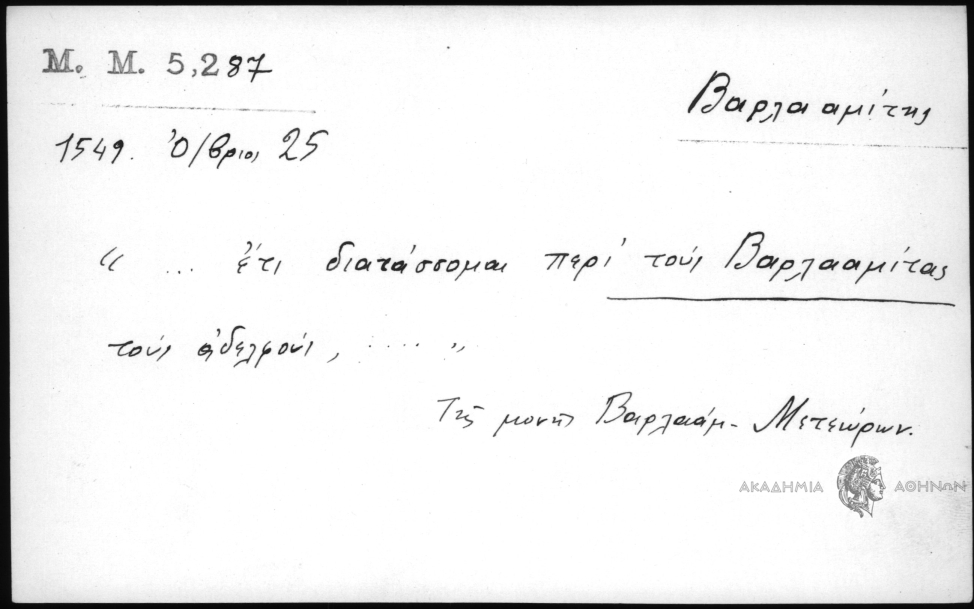 Μ. Μ. 5,287
Βαρλααμίτης
1549. Ὀ/βριος 25
“ ... ἔτι διατάσσομαι περὶ τοὺς Βαρλααμίτας
τοὺς ἀδελφούς, ..... ”
Τῆς μονῆς Βαρλαάμ - Μετεώρων.
ΑΚΑΔΗΜΙΑ ΑΘΗΝΩΝ